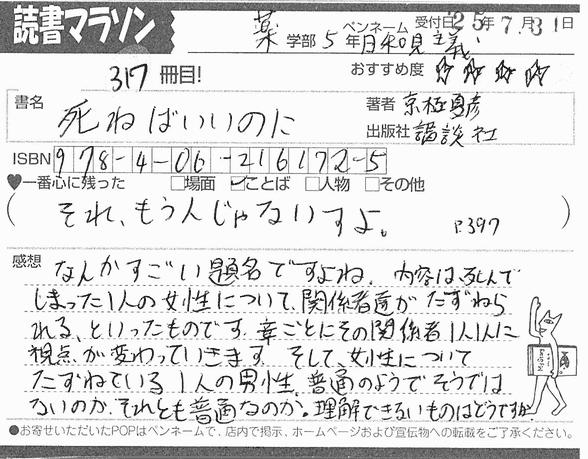 読書マラソン
薬 学部 5 年 ペンネーム 日和見主義 受付日 25年 7月 31日
317 冊目!
おすすめ度 ☆☆☆☆
書名 死ねばいいのに
著者 京極夏彦
出版社 講談社
ISBN 978-4-06-216172-5
♥一番心に残った □場面 ☑ことば □人物 □その他
(それ、もう人じゃないすよ。 P397)
感想 なんかすごい題名ですよね。内容は、死んで
しまった1人の女性について、関係者達がたずねら
れる、といったものです。章ごとにその関係者1人1人に
視点が変わっていきます。そして、女性について
たずねている1人の男性、普通のようでそうでは
ないのか、それとも普通なのか。理解できないものはどうですか
●お寄せいただいたPOPはペンネームで、店内で掲示、ホームページおよび宣伝物への転載をご了承ください。